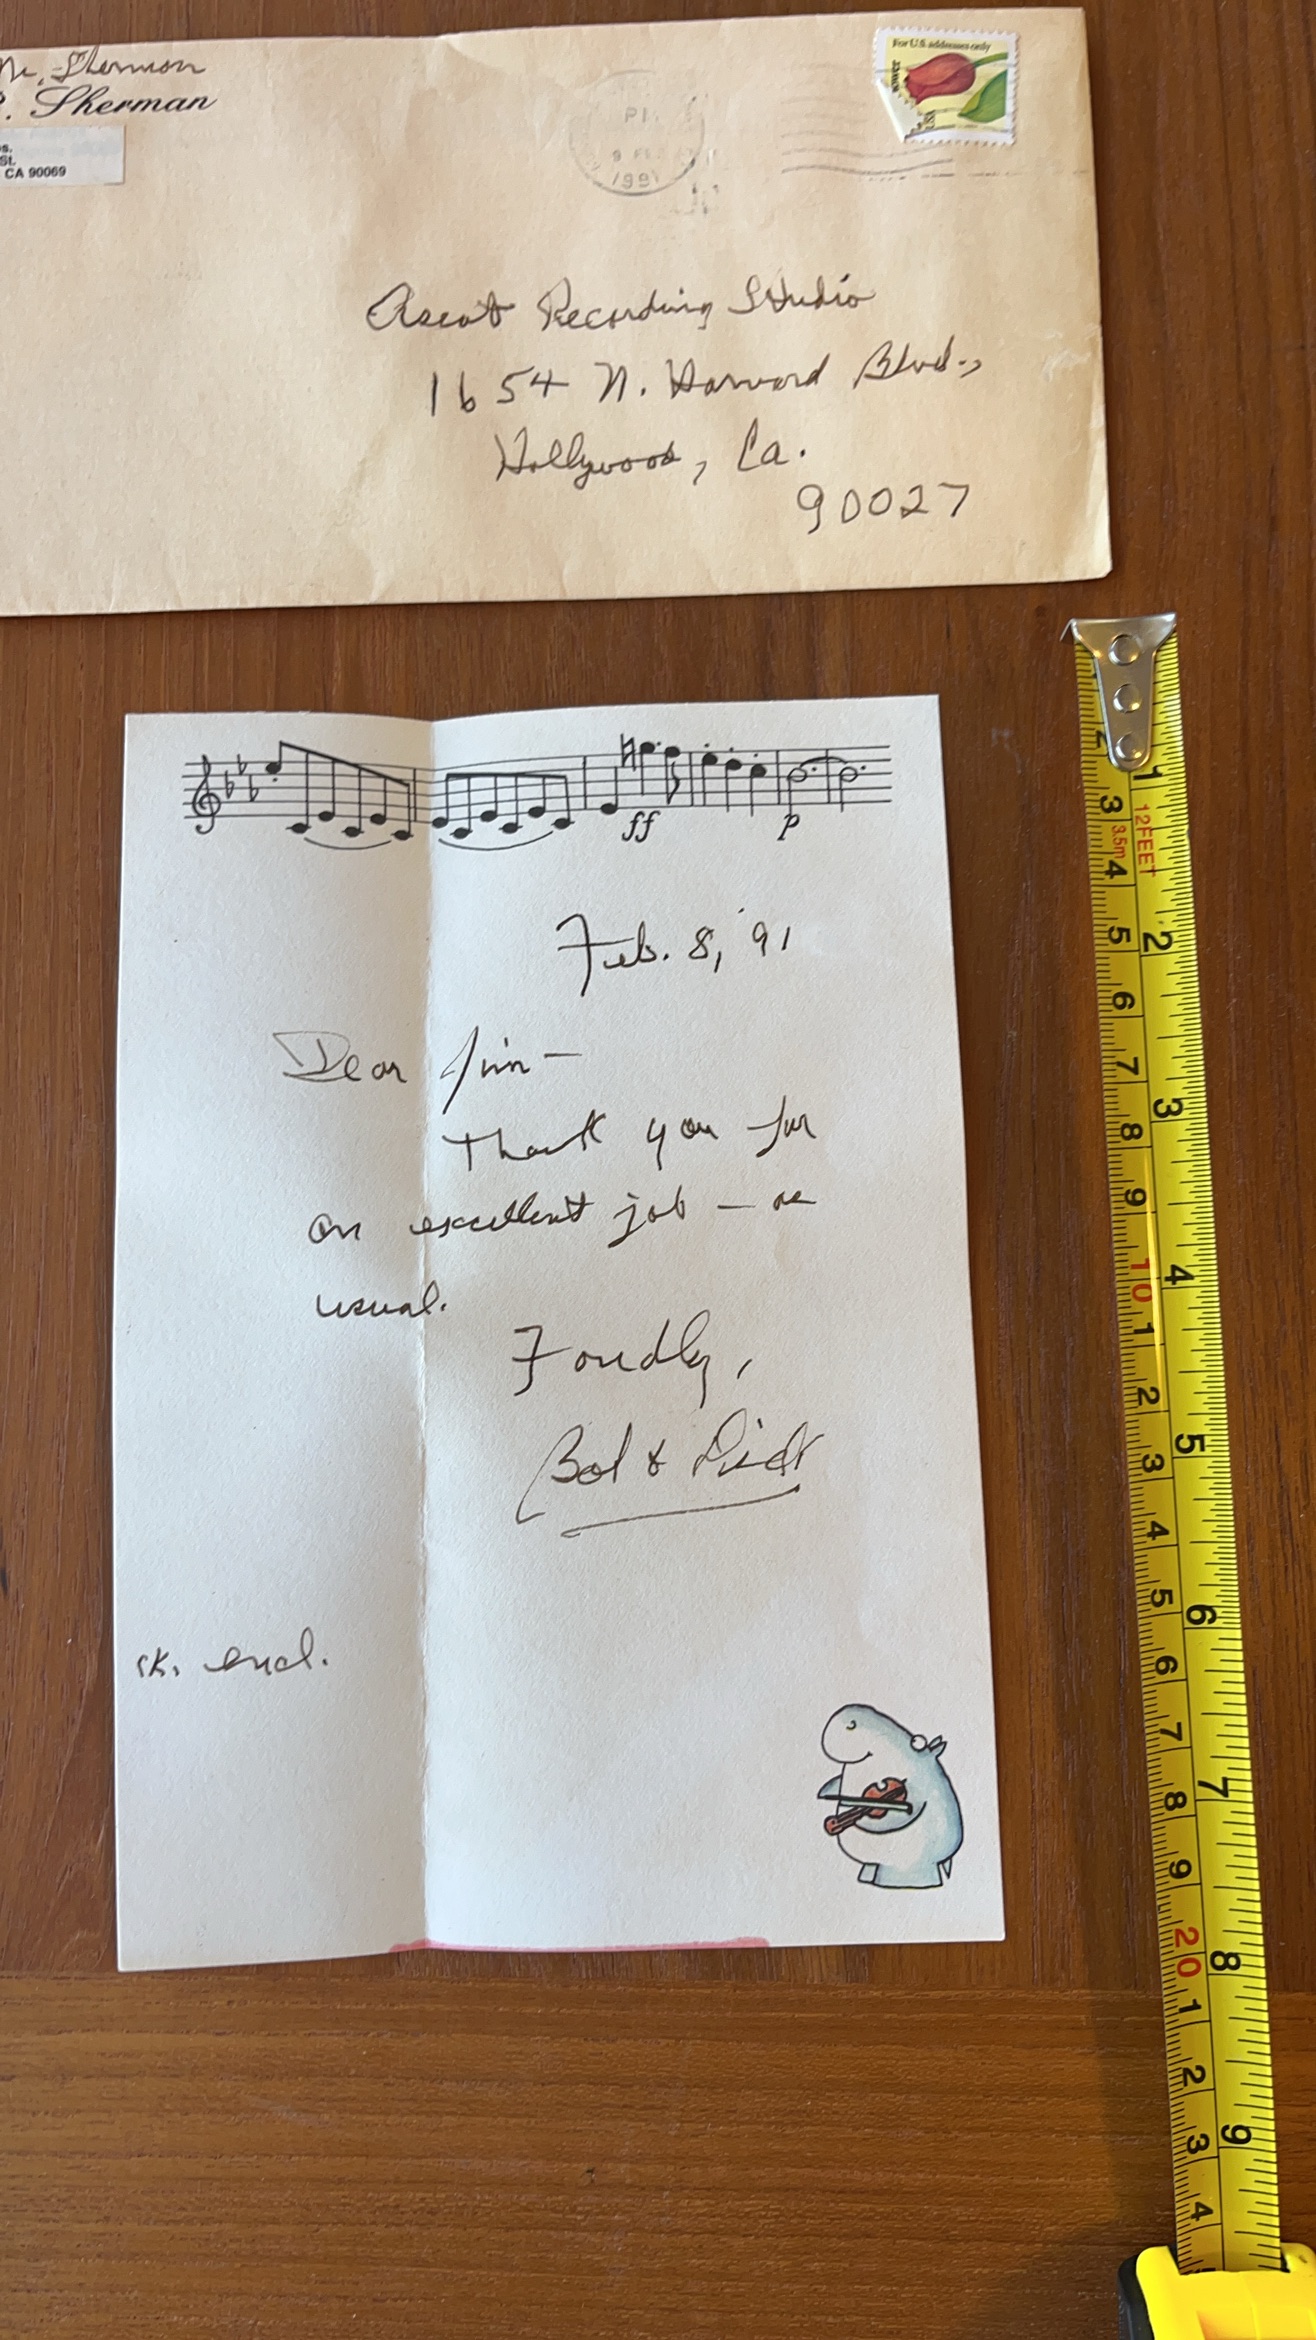 Sherman
Sherman
St.
CA 90069
9
1991
For U.S. addresses only
USA
Ascot Recording Studio
1654 N. Harvard Blvd.,
Hollywood, Ca.
90027
ff p
Feb. 8, '91
Dear Jim—
Thank you for
an excellent job — as
usual.
Fondly,
Bob & Dick
ck. encl.
2
3
3.5m
4
5
6
7
8
9
10
1
2
3
4
5
6
7
8
9
20
1
2
3
4
1
12FEET
2
3
4
5
6
7
8
9